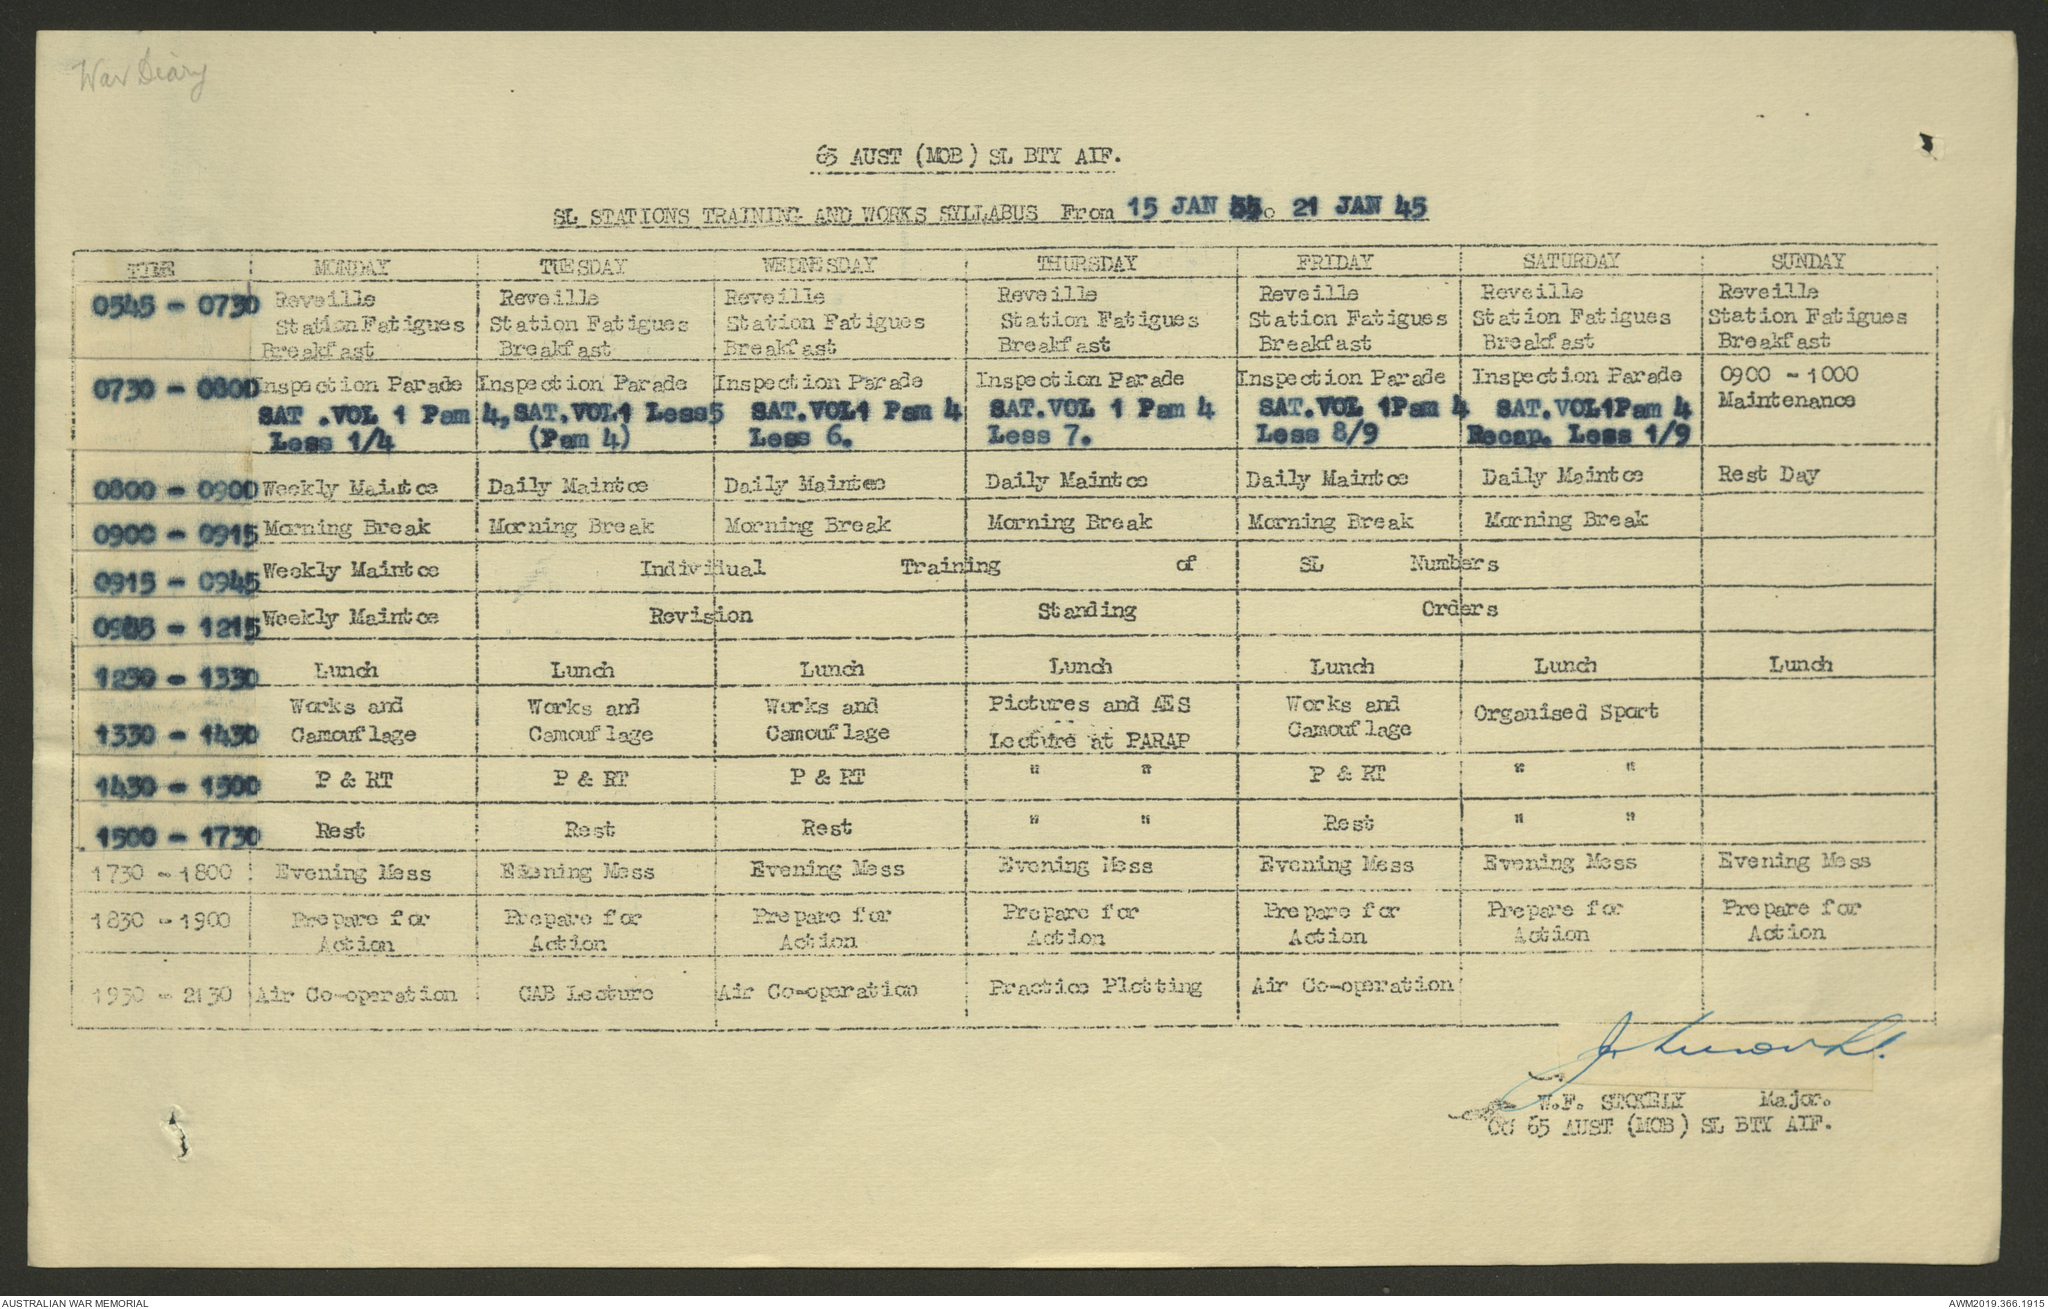 War Diary
65 AUST (MOB) SL BTY AIF.
SL STATIONS TRAINING AND WORKS SYLLABUS From 15 JAN to 21 JAN 45
TIME MONDAY TUESDAY WEDNESDAY THURSDAY FRIDAY SATURDAY SUNDAY
0545 - 0730 Reveille Reveille Reveille Reveille Reveille Reveille Reveille
Station Fatigues Station Fatigues Station Fatigues Station Fatigues Station Fatigues Station Fatigues Station Fatigues
Breakfast Breakfast Breakfast Breakfast Breakfast Breakfast Breakfast
0730 - 0800 Inspection Parade Inspection Parade Inspection Parade Inspection Parade Inspection Parade Inspection Parade 0900 - 1000
SAT .VOL 1 Pam 4, SAT.VOL1 Less5 SAT.VOL1 Pam 4 SAT.VOL 1 Pam 4 SAT.VOL 1Pam 4 SAT.VOL1Pam 4 Maintenance
Less 1/4 (Pam 4) Less 6. Less 7. Less 8/9 Recap. Less 1/9
0800 - 0900 Weekly Maintce Daily Maintce Daily Maintce Daily Maintce Daily Maintce Daily Maintce Rest Day
0900 - 0915 Morning Break Morning Break Morning Break Morning Break Morning Break Morning Break
0915 - 0945 Weekly Maintce Individual Training of SL Numbers
- 1215 Weekly Maintce Revision Standing Orders
1230 - 1330 Lunch Lunch Lunch Lunch Lunch Lunch Lunch
1330 - 1430 Works and Works and Works and Pictures and AES Works and Organised Sport
Camouflage Camouflage Camouflage Lecture at PARAP Camouflage
1430 - 1500 P & RT P & RT P & RT " " P & RT " "
1500 - 1730 Rest Rest Rest " " Rest " "
1730 - 1800 Evening Mess Evening Mess Evening Mess Evening Mess Evening Mess Evening Mess Evening Mess
1830 - 1900 Prepare for Prepare for Prepare for Prepare for Prepare for Prepare for Prepare for
Action Action Action Action Action Action Action
1930 - 2130 Air Co-operation GAB Lecture Air Co-operation Practice Plotting Air Co-operation
W.F. Major.
OC 65 AUST (MOB) SL BTY AIF.
AUSTRALIAN WAR MEMORIAL
AWM2019.366.1915